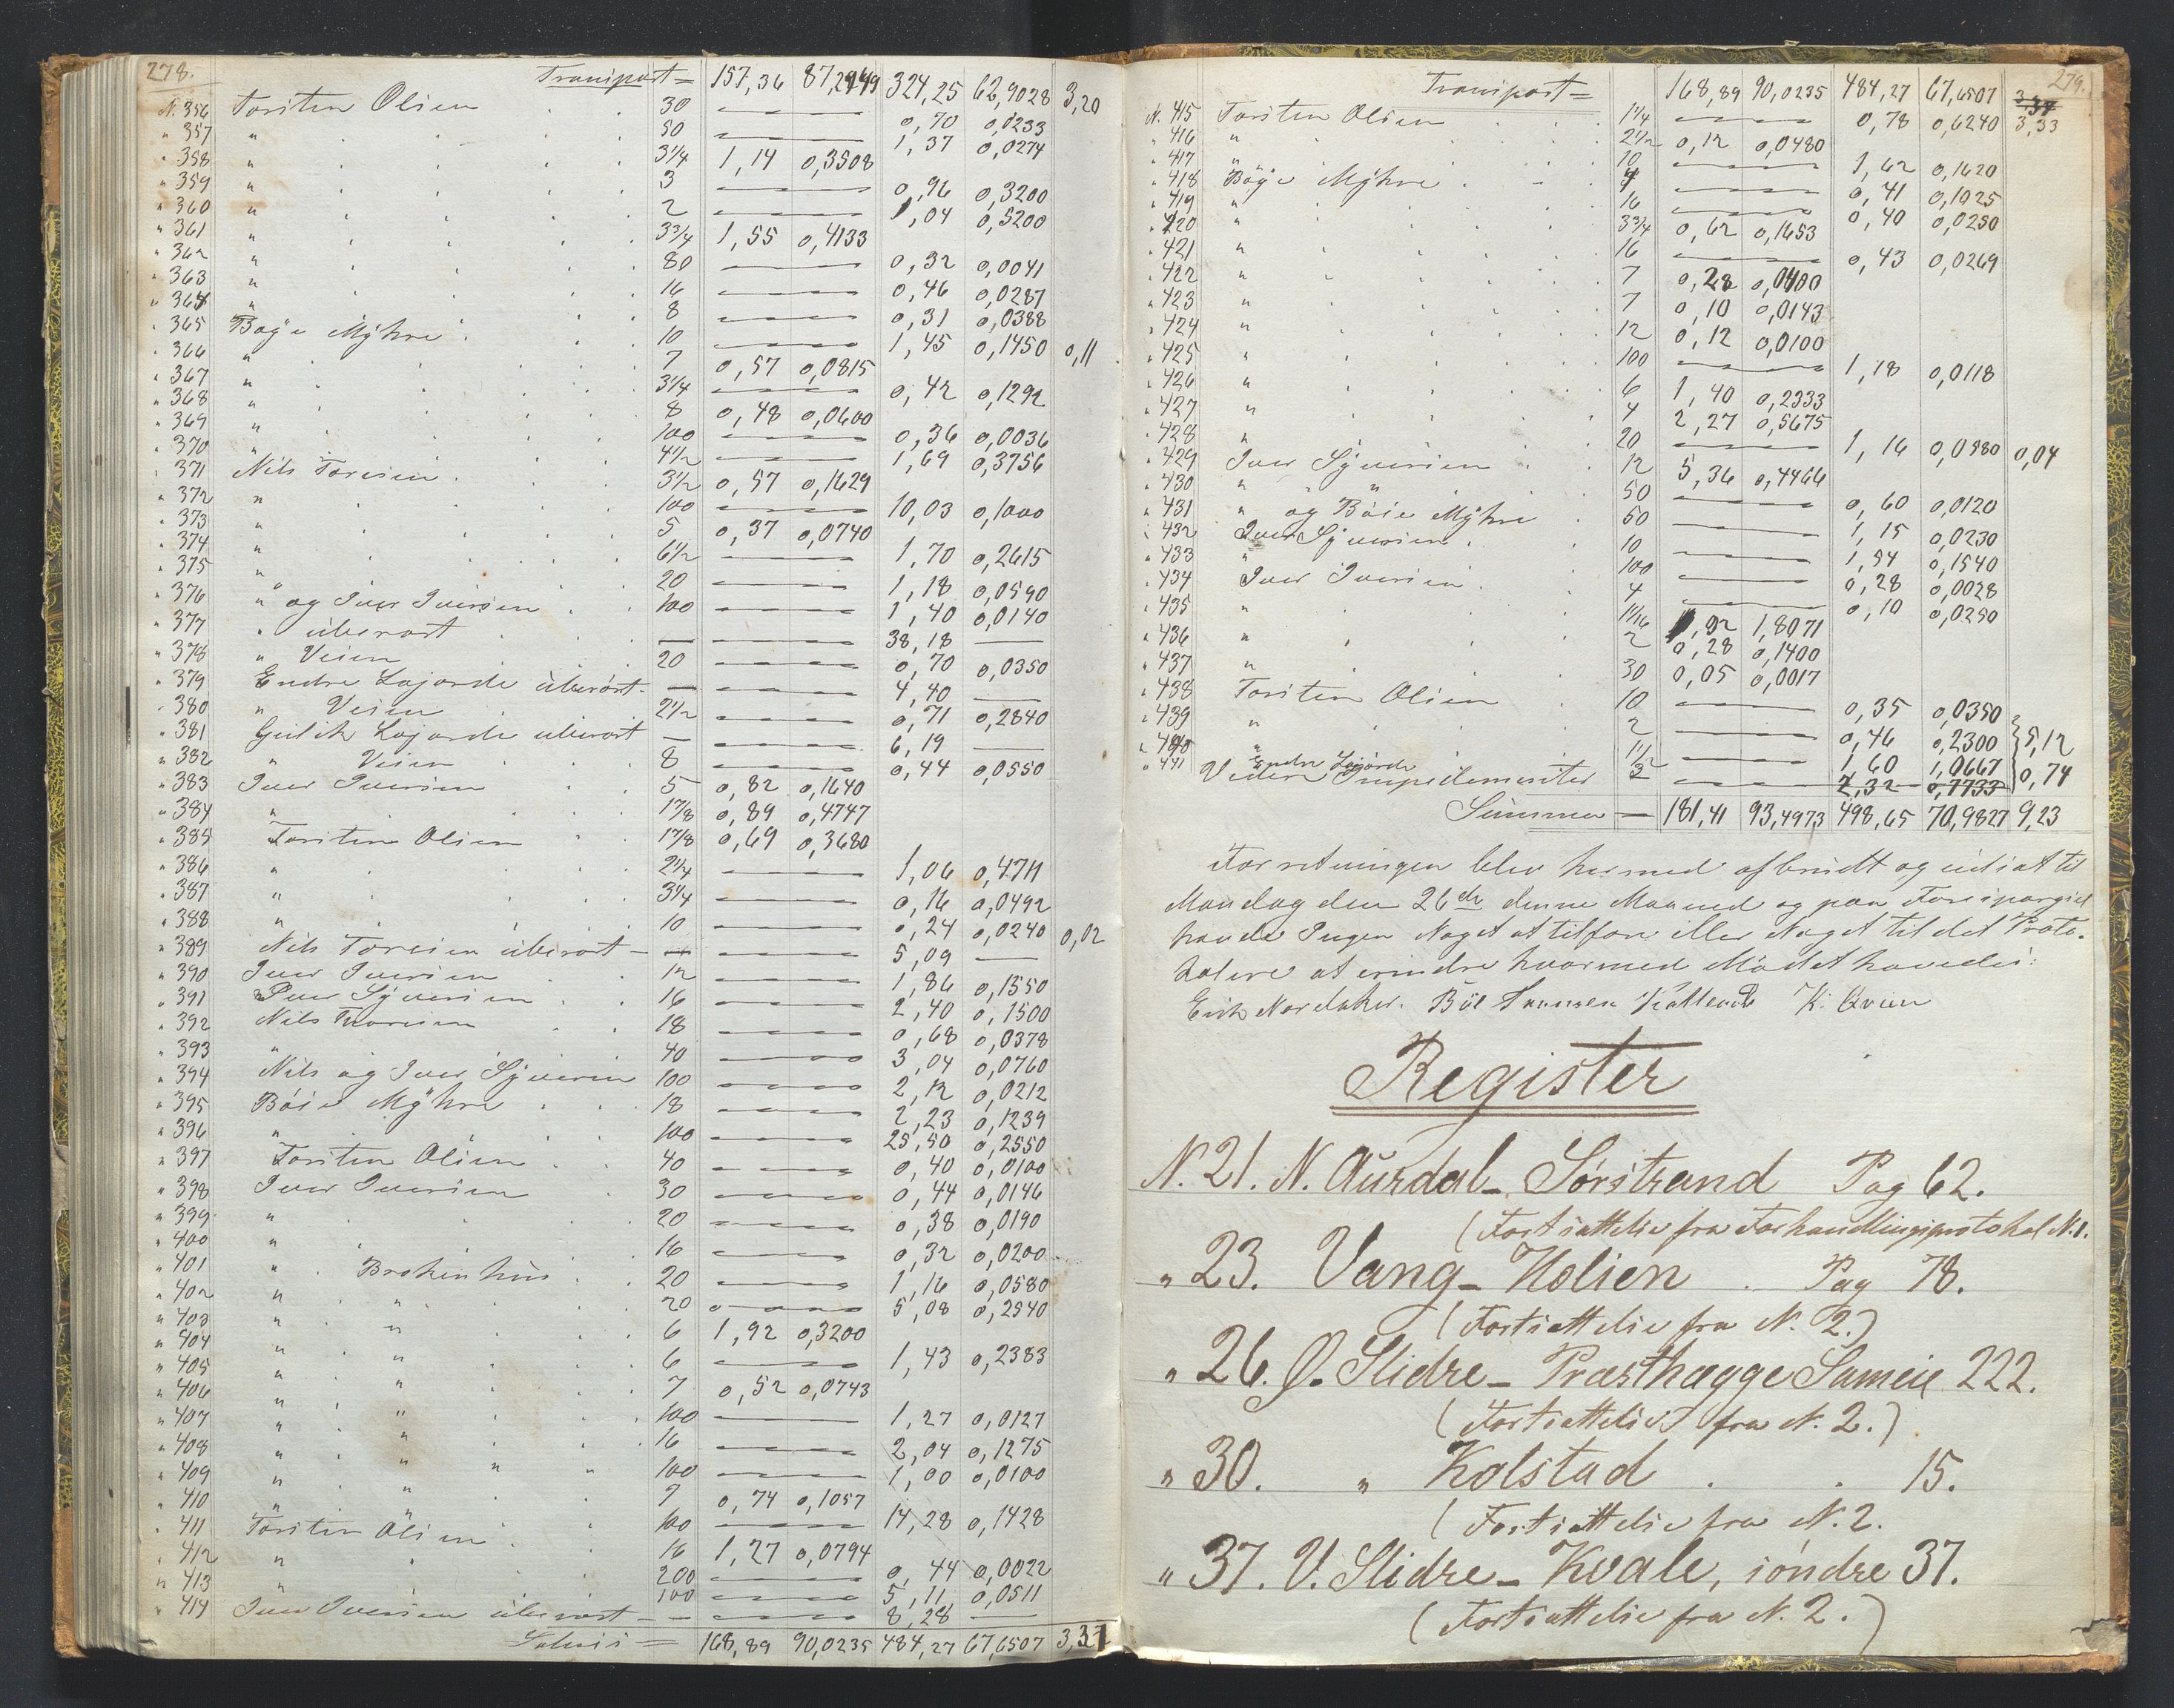 278.
Transport = 157,36 87,2949 324,25 62,9028 3,20
N. 356 Torsten Olsen 30 0,70 0,0233
" 357 " 50 1,37 0,0274
" 358 " 3 1/4 1,14 0,3508
" 359 " 3 0,96 0,3200
" 360 " 2 1,04 0,5200
" 361 " 3 3/4 1,55 0,4133
" 362 " 80 0,32 0,0041
" 363 " 16 0,46 0,0287
" 364 " 8 0,31 0,0388
" 365 Bøye Myhre 10 1,45 0,1450 0,11
" 366 " 7 0,57 0,0815
" 367 " 3 1/4 0,42 0,1292
" 368 " 8 0,48 0,0600
" 369 " 100 0,36 0,0036
" 370 " 4 1/2 1,69 0,3756
" 371 Nils Toresen 3 1/2 0,57 0,1629
" 372 " 100 10,03 0,1000
" 373 " 5 0,37 0,0740
" 374 " 6 1/2 1,70 0,2615
" 375 " 20 1,18 0,0590
" 376 " og Iver Iversen 100 1,40 0,0140
" 377 " uberørt — 38,18 —
" 378 " Veien 20 0,70 0,0350
" 379 Endre Lajorde uberørt — 4,40 —
" 380 " Veien 2 1/2 0,71 0,2840
" 381 Gulik Lajorde uberørt — 6,19 —
" 382 " Veien 8 0,44 0,0550
" 383 Iver Iversen 5 0,82 0,1640
" 384 " 1 7/8 0,89 0,4747
" 385 Torsten Olsen 1 7/8 0,69 0,3680
" 386 " 2 1/4 1,06 0,4711
" 387 " 3 1/4 0,16 0,0492
" 388 " 10 0,24 0,0240 0,02
" 389 Nils Toresen uberørt — 5,09 —
" 390 Iver Iversen 12 1,86 0,1550
" 391 Iver Syversen 16 2,40 0,1500
" 392 Nils Thoresen 18 0,68 0,0378
" 393 " 40 3,04 0,0760
" 394 Nils og Iver Syversen 100 2,12 0,0212
" 395 Bøie Myhre 18 2,23 0,1239
" 396 " 100 25,50 0,2550
" 397 Torsten Olsen 40 0,40 0,0100
" 398 Iver Iversen 30 0,44 0,0146
" 399 " 20 0,38 0,0190
" 400 " 16 0,32 0,0200
" 401 " Brokenhus 20 1,16 0,0580
" 402 " " 20 5,08 0,2540
" 403 " " 6 1,92 0,3200
" 404 " " 6 1,43 0,2383
" 405 " " 7 0,52 0,0743
" 406 " " 100 1,27 0,0127
" 407 " " 16 2,04 0,1275
" 408 " " " " 100 1,00 0,0100
" 409 " " 7 0,74 0,1057
" 410 " " 100 14,28 0,1428
" 411 Torsten Olsen 16 1,27 0,0794
" 412 " 200 0,44 0,0022
" 413 " 100 5,11 0,0511
" 414 Iver Iversen uberørt — 8,28 —
Lateris = 168,89 90,0235 484,27 67,6507 3,37
279.
Transport = 168,89 90,0235 484,27 67,6507 3,37
N. 415 Torsten Olsen 1 1/4 0,78 0,6240 3,33
" 416 " 2 1/2 0,12 0,0480
" 417 " 10 1,62 0,1620
" 418 Bøye Myhre 4 0,41 0,1025
" 419 " 16 0,40 0,0250
" 420 " 3 3/4 0,62 0,1653
" 421 " 16 0,43 0,0269
" 422 " 7 0,28 0,0400
" 423 " 7 0,10 0,0143
" 424 " 12 0,12 0,0100
" 425 " 100 1,18 0,0118
" 426 " 6 1,40 0,2333
" 427 " 4 2,27 0,5675
" 428 " 20 1,16 0,0580 0,04
" 429 Iver Syversen 12 5,36 0,4466
" 430 " " 50 0,60 0,0120
" 431 " og Bøie Myhre 50 1,15 0,0230
" 432 Iver Syversen 10 1,54 0,1540
" 433 " 100 0,28 0,0028
" 434 Iver Iversen 4 0,10 0,0250
" 435 " 1,92 1,8071
" 436 " 2 0,28 0,1400
" 437 " 30 0,05 0,0017
" 438 Torsten Olsen 10 0,35 0,0350
" 439 " 2 0,46 0,2300 5,12
" 440 " 1 1/2 1,60 1,0667
" 441 Endre Lajorde 3 2,32 0,7733 0,74
Veien Impedimenter
Summa — 181,41 93,4973 498,65 70,9827 9,23
Forretningen blev hermed afbrudt og udsat til
Mandag den 26de denne Maaned og paa Forespørgsel
havde Ingen Noget at tilføre eller Noget til det Proto-
kolere at erindre hvormed Mødet hævedes:
Erik Nordaker. K. Qvien
Register
N. 21. N. Aurdal - Sørstrand Pag 62.
(Fortsættelse fra Forhandlingsprotokol N. 1.
" 23. Vang - Holien . Pag 78.
(Fortsættelse fra N. 2.)
" 26. Ø. Slidre - Præsthægge Sameie 222.
(Fortsættelse fra N. 2.)
" 30. " Kolstad . . 15.
(Fortsættelse fra N. 2.
" 37. V. Slidre - Kvale, søndre 37.
(Fortsættelse fra N. 2.)